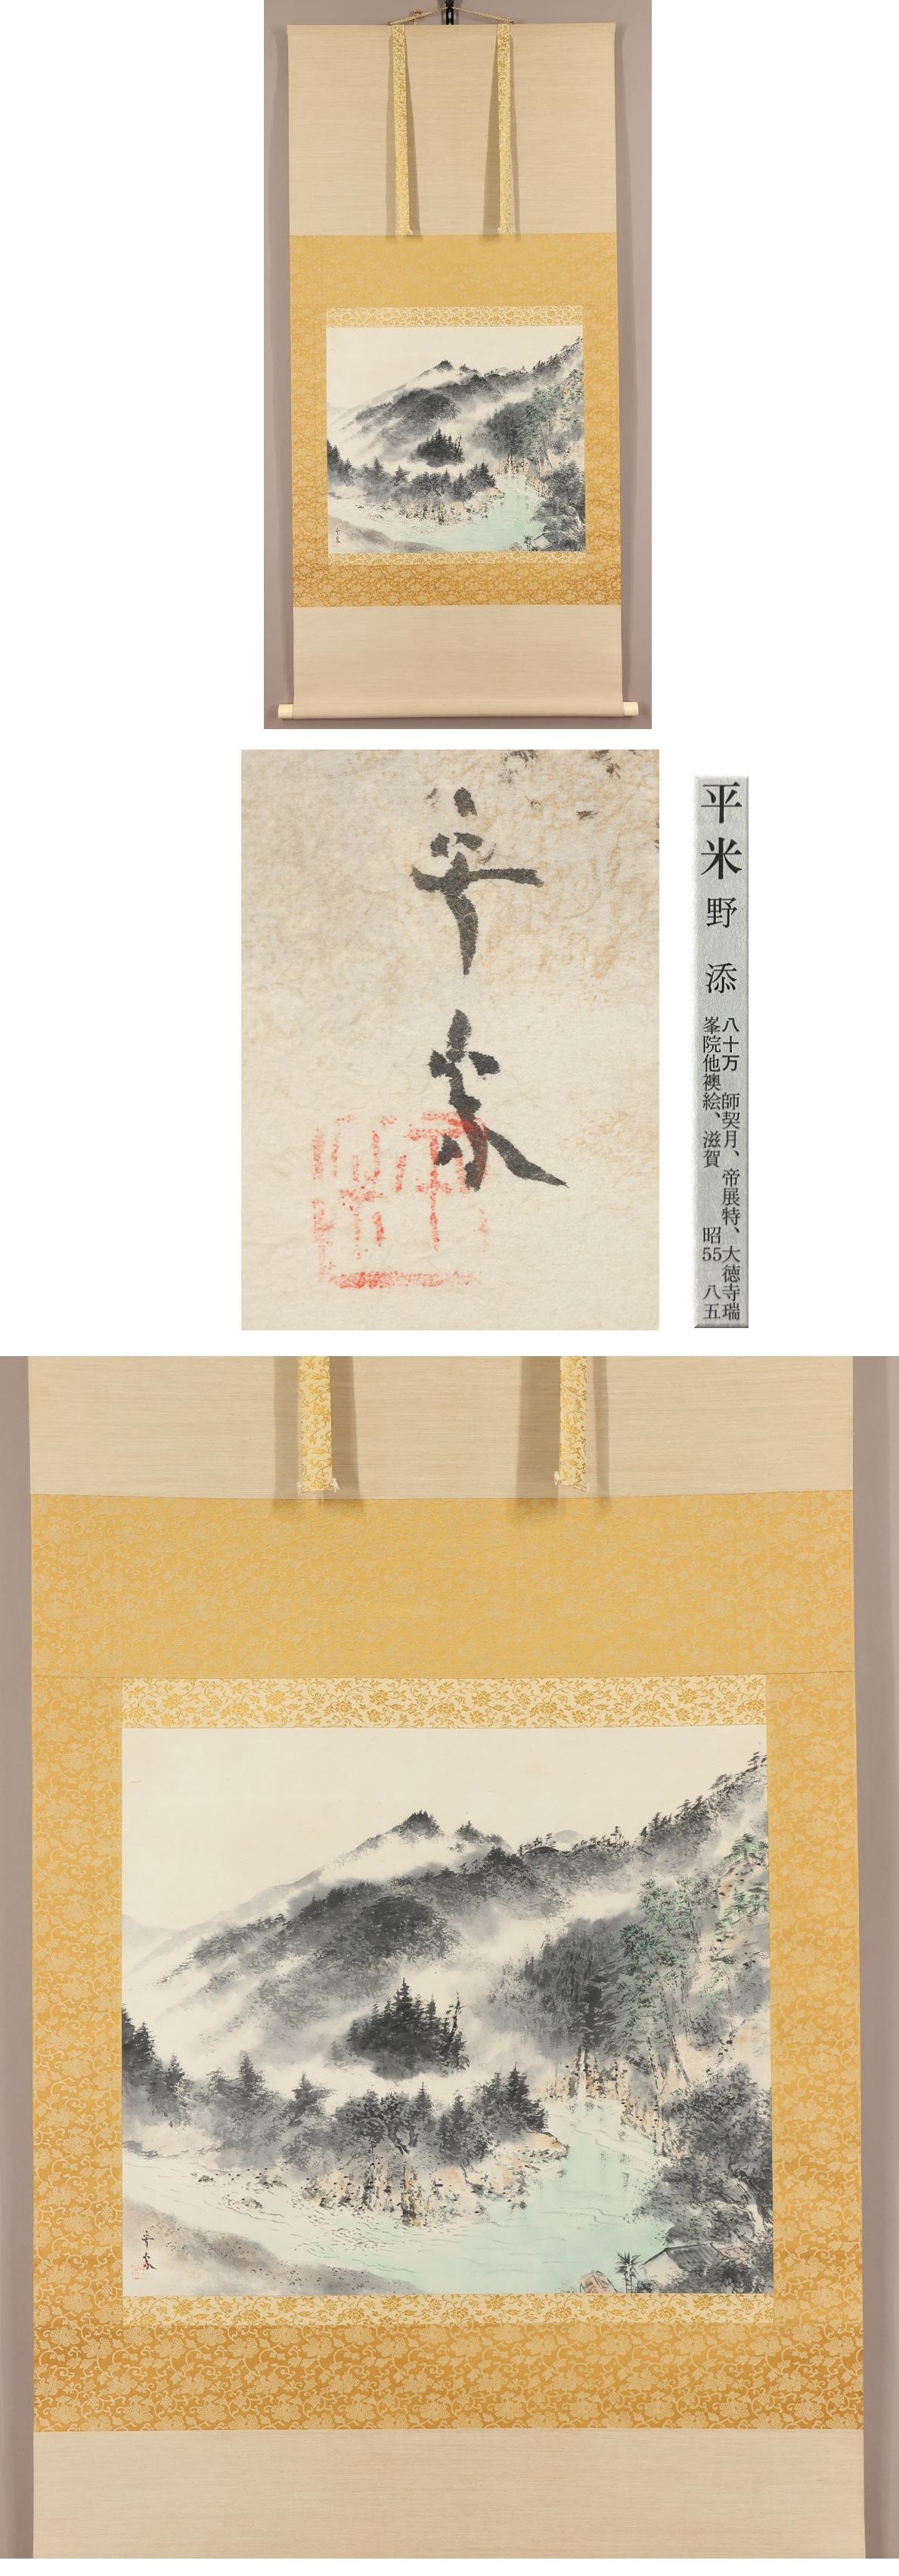 平米
平米 野添
八十万 師契月、帝展特、大徳寺瑞
峯院他襖絵、滋賀 昭55 八五
平米